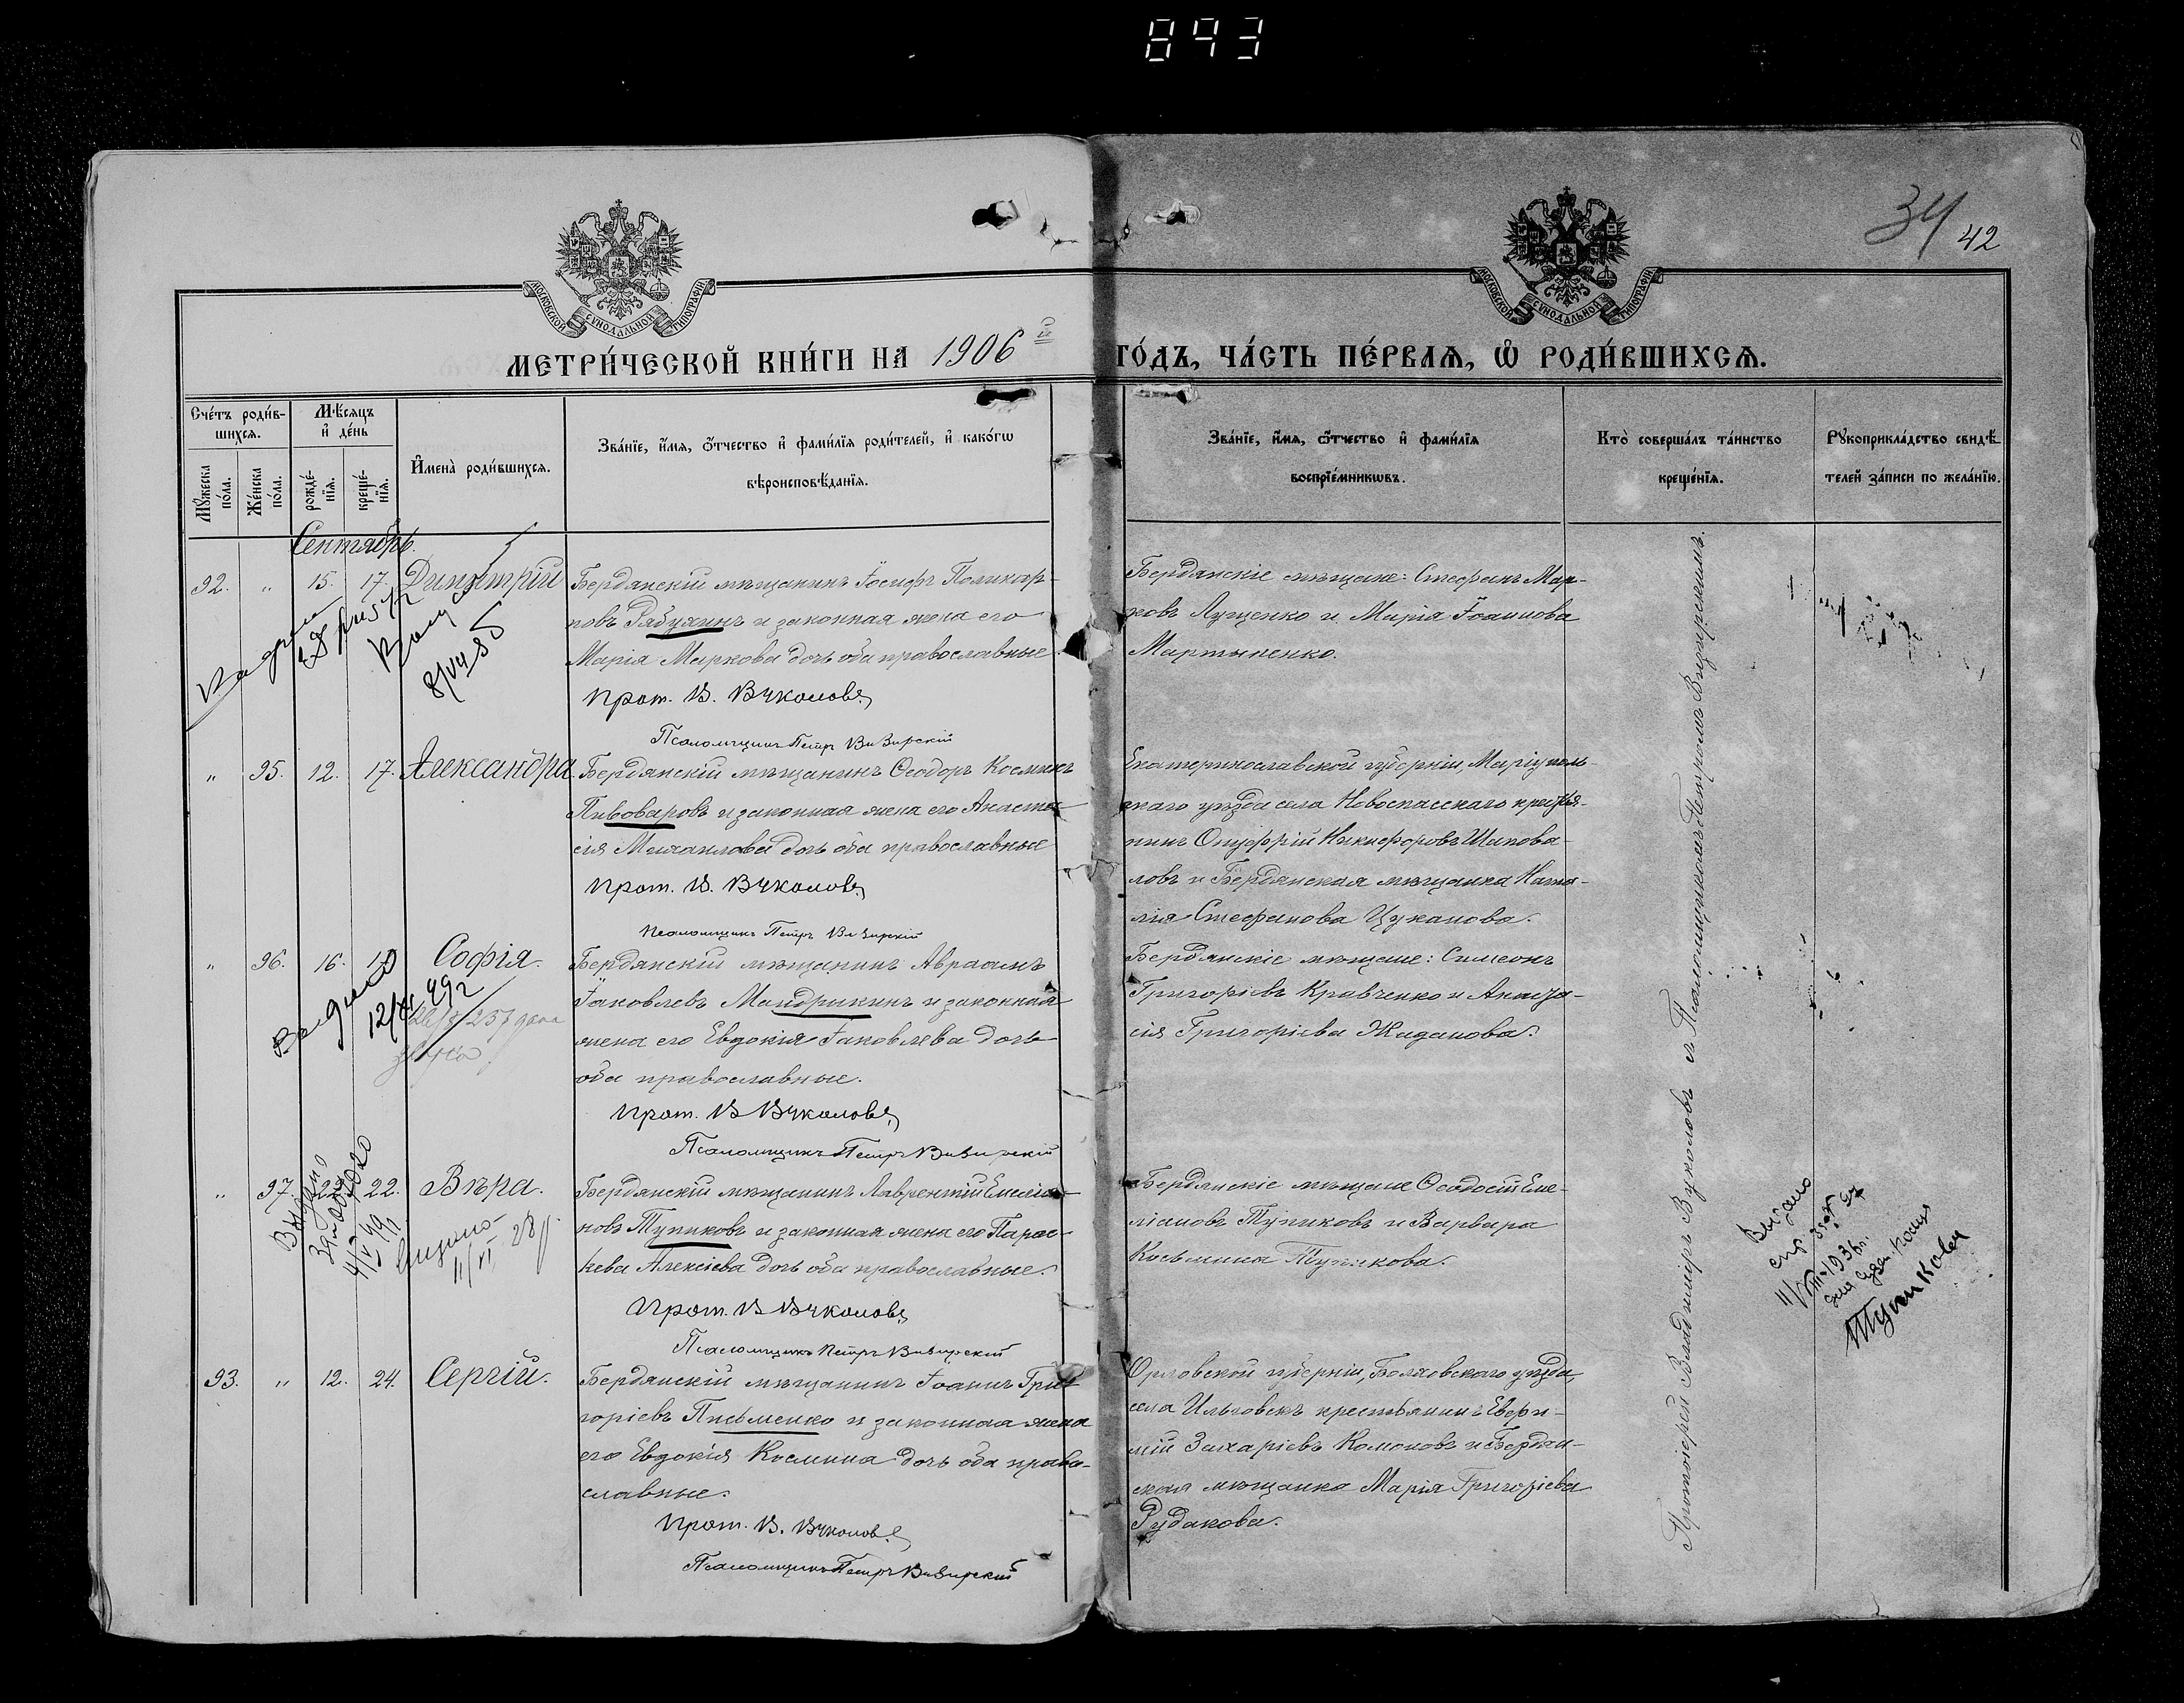 893
34 42
МОСКОВСКОЙ СѴНОДАЛЬНОЙ ТИПОГРАФІИ
МОСКОВСКОЙ СѴНОДАЛЬНОЙ ТИПОГРАФІИ
МЕТРИ́ЧЕСКОЙ КНИ́ГИ НА 1906й ГО́ДЪ, ЧА́СТЬ ПЕ́РВАѦ, Ѽ РОДИ́ВШИХСѦ.
Сче́тъ роди́вшихсѧ.
Мꙋ́жеска по́ла.
Же́нска по́ла.
Мѣ́сѧцъ и҆ де́нь
рожде́нїѧ.
креще́нїѧ.
И҆мена̀ роди́вшихсѧ.
Зва́нїе, и҆́мѧ, ѻ҆́тчество и҆ фами́лїѧ роди́телей, и҆ како́гѡ
вѣроисповѣ́данїѧ.
Зва́нїе, и҆́мѧ, ѻ҆́тчество и҆ фами́лїѧ
воспрїе́мникѡвъ.
Кто̀ соверша́лъ та́инство
креще́нїѧ.
Рꙋкоприкла́дство свидѣ́телей за́писи по жела́нїю.
Сентябрь.
92. " 15. 17. Димитрій
Бердянскій мѣщанинъ Іосифъ Поликар-
повъ Рябухинъ и законная жена его
Марія Маркова дочь оба православные
Прот. В. Вуколовъ
Псаломщикъ Петръ Визирскій
Бердянскіе мѣщане: Стефанъ Мар-
ковъ Луценко и Марія Іоаннова
Мартыненко.
" 95. 12. 17. Александра
Бердянскій мѣщанинъ Ѳеодоръ Косминъ
Пивоваровъ и законная жена его Анаста-
сія Михаилова дочь оба православные
Прот. В. Вуколовъ
Псаломщикъ Петръ Визирскій
Екатеринославской губерніи, Маріуполь-
скаго уѣзда села Новоспасскаго крестья-
нинъ Онуфрій Никифоровъ Шапова-
ловъ и Бердянская мѣщанка Ната-
лія Стефанова Цуканова.
" 96. 16. 17 Софія.
Выдано
Бердянскій мѣщанинъ Авраамъ
Іаковлевъ Мандрыкинъ и законная
жена его Евдокія Іаковлева дочь
оба православные.
Прот. В Вуколовъ
Псаломщикъ Петръ Визирскій
Бердянскіе мѣщане: Симеонъ
Григоріевъ Кравченко и Анаста-
сія Григоріева Жаданова.
" 97. 22. Вѣра.
Выдано
Бердянскій мѣщанинъ Лаврентій Емеліа-
новъ Тупиковъ и законная жена его Парас-
кева Алексіева дочь оба православные.
Прот. В Вуколовъ
Псаломщикъ Петръ Визирскій
Бердянскіе мѣщане Ѳеодосій Еме-
ліановъ Тупиковъ и Варвара
Косьмина Тупикова.
Выдано
1936 г.
Тупикова
93. " 12. 24. Сергій.
Бердянскій мѣщанинъ Іоаннъ Гри-
горіевъ Письменко и законная жена
его Евдокія Космина дочь оба право-
славные.
Прот. В. Вуколовъ
Псаломщикъ Петръ Визирскій
Орловской губерніи, Болховскаго уѣзда,
села крестьянинъ Евфи-
мій Захаріевъ Комоновъ и Бердян-
ская мѣщанка Марія Григоріева
Рудакова.
Протоіерей Владиміръ Вуколовъ съ Псаломщикомъ Петромъ Визирскимъ.